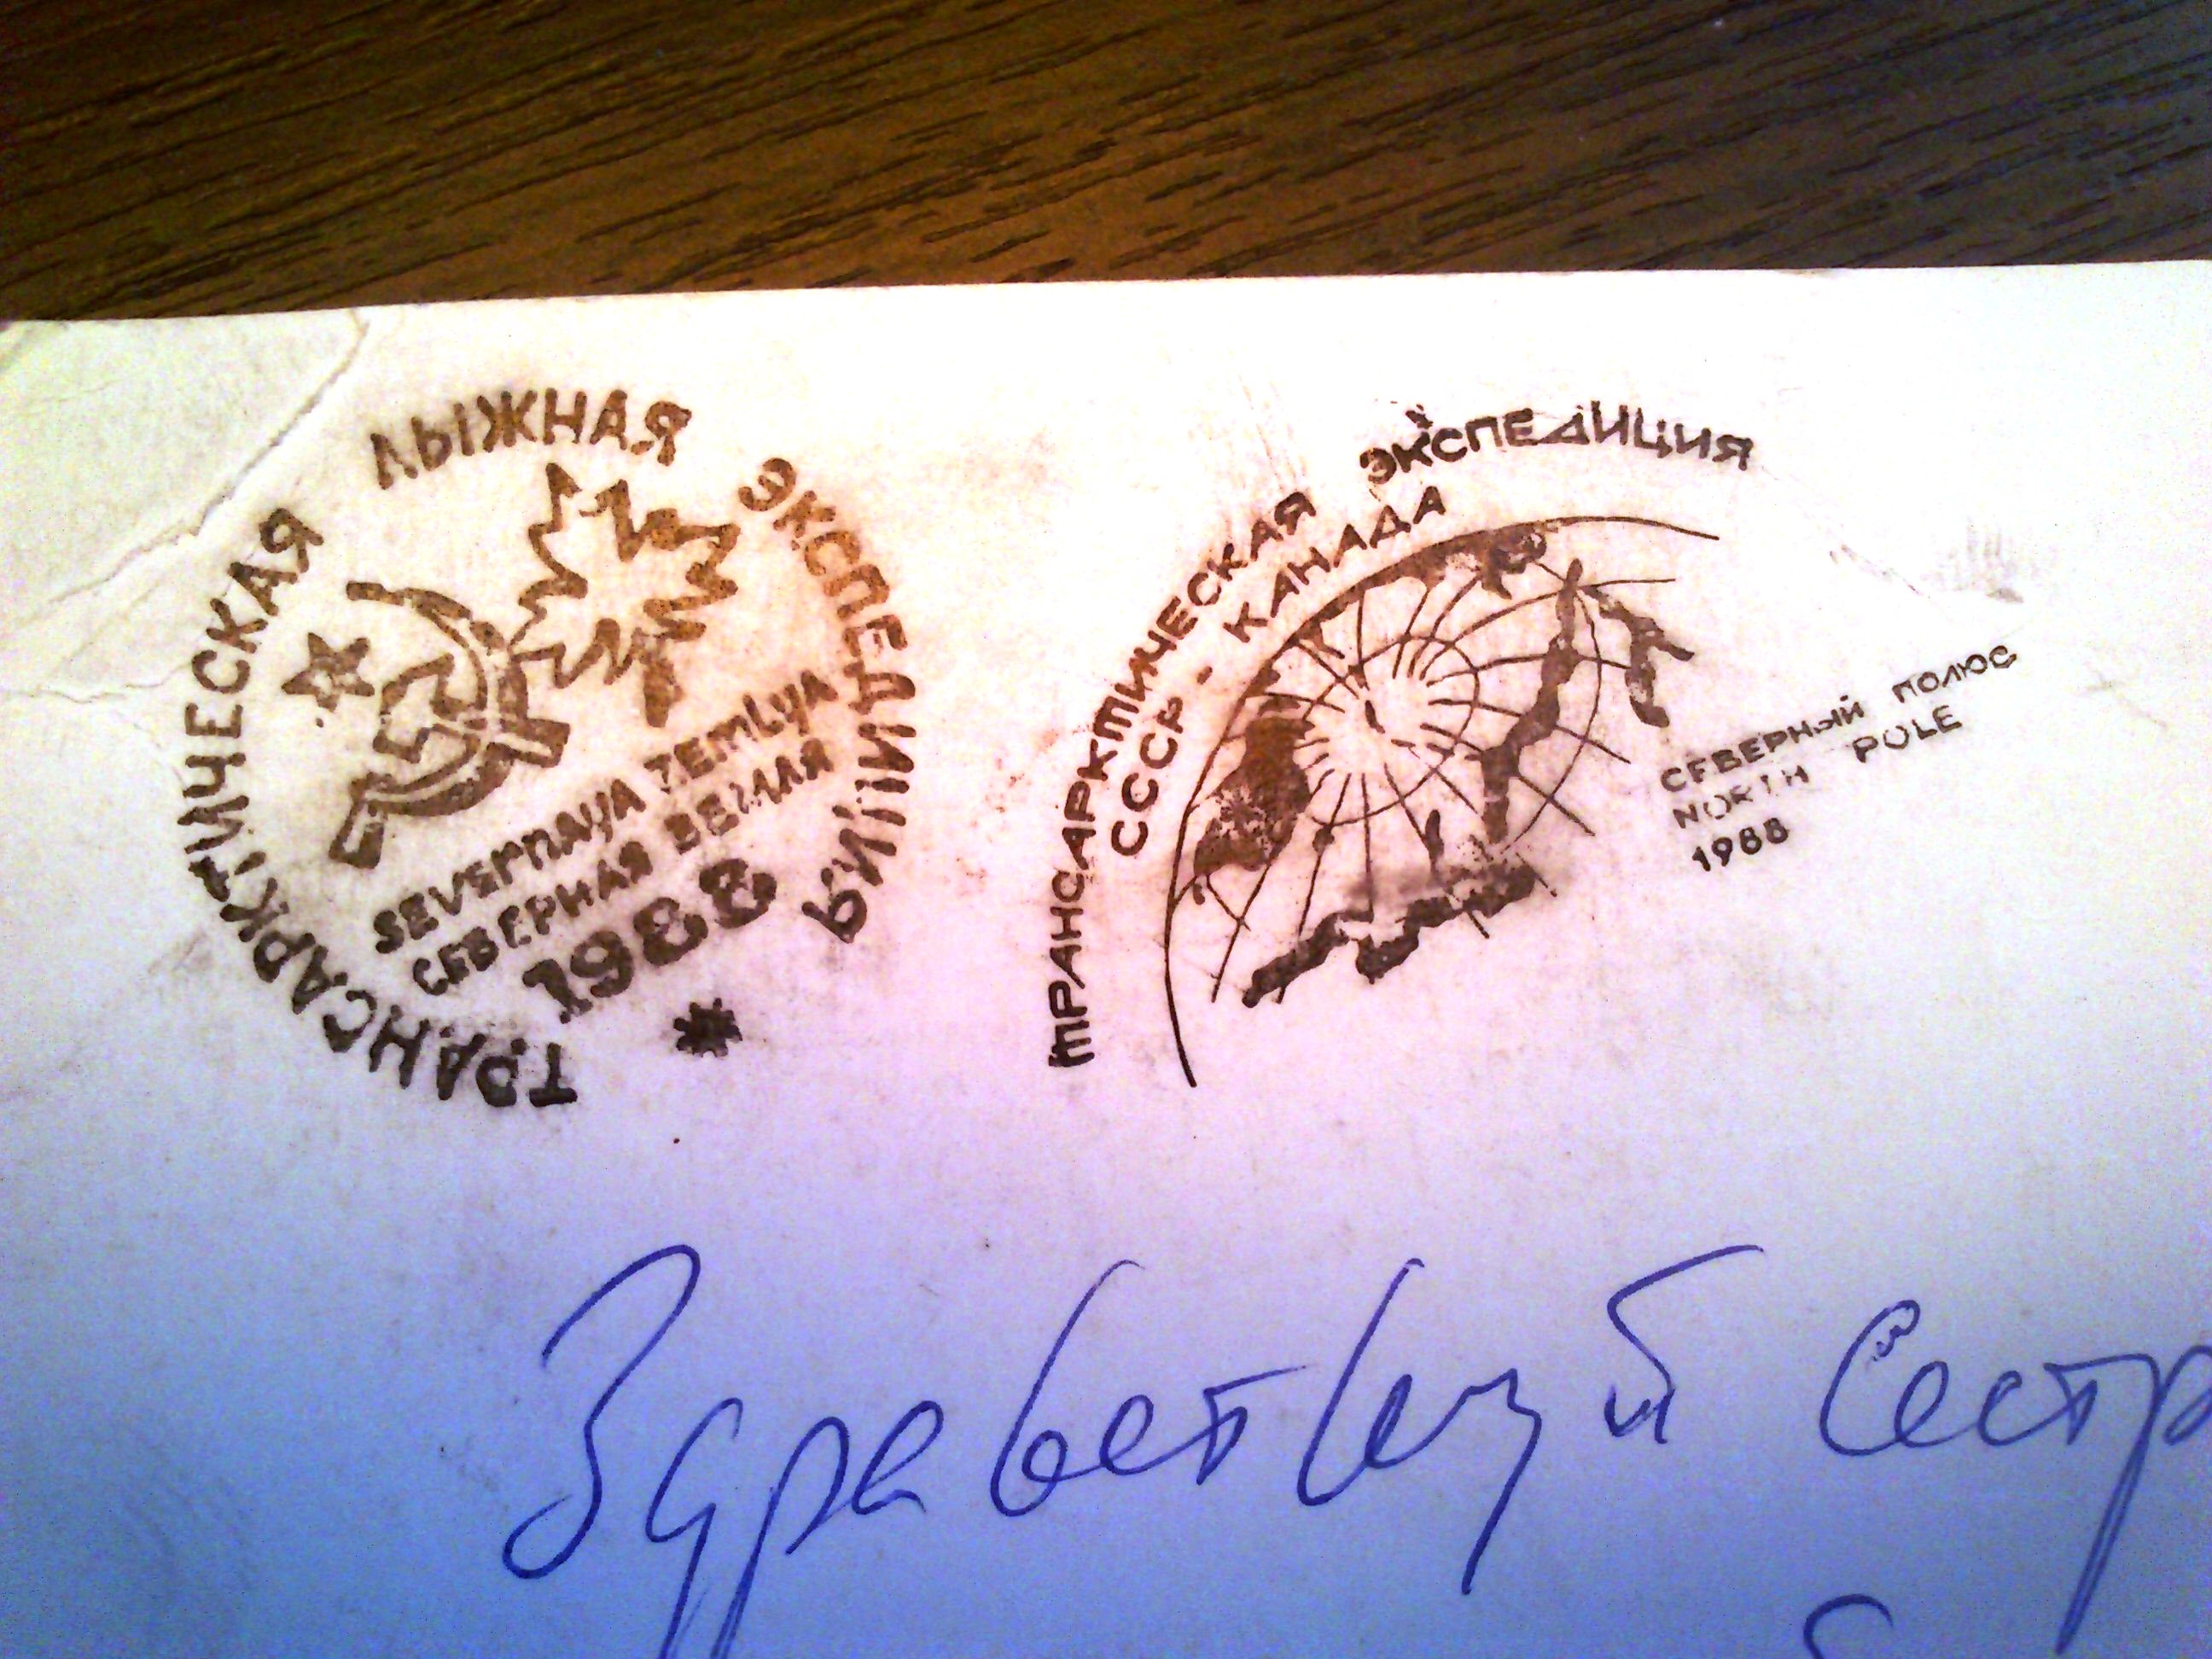 ТРАНСАРКТИЧЕСКАЯ ЛЫЖНАЯ ЭКСПЕДИЦИЯ
SEVERNAYA ZEMLYA
СЕВЕРНАЯ ЗЕМЛЯ
1988
ТРАНСАРКТИЧЕСКАЯ ЭКСПЕДИЦИЯ
СССР - КАНАДА
СЕВЕРНЫЙ ПОЛЮС
NORTH POLE
1988
Здравствуй Сестр